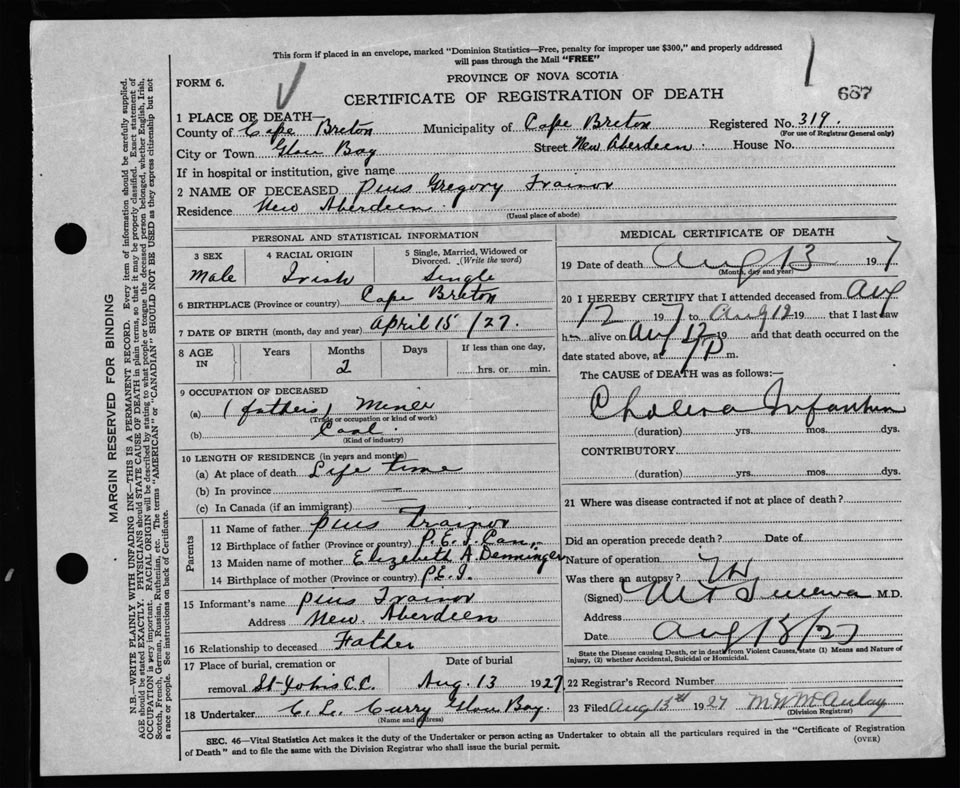 This form if placed in an envelope, marked "Dominion Statistics—Free, penalty for improper use $300," and properly addressed
will pass through the Mail "FREE"
FORM 6.
PROVINCE OF NOVA SCOTIA
687
CERTIFICATE OF REGISTRATION OF DEATH
1 PLACE OF DEATH—
County of Cape Breton Municipality of Cape Breton Registered No. 319.
(For use of Registrar General only)
City or Town Glace Bay Street New Aberdeen. House No.
If in hospital or institution, give name
2 NAME OF DECEASED Pius Gregory Trainor
Residence New Aberdeen.
(Usual place of abode)
PERSONAL AND STATISTICAL INFORMATION
3 SEX 4 RACIAL ORIGIN 5 Single, Married, Widowed or
Divorced. (Write the word)
Male Irish Single
6 BIRTHPLACE (Province or country) Cape Breton
7 DATE OF BIRTH (month, day and year) April 15 /27.
8 AGE IN Years Months Days If less than one day,
2 hrs. or min.
9 OCCUPATION OF DECEASED
(a) (fathers) Miner
(Trade or occupation or kind of work)
(b) Coal.
(Kind of industry)
10 LENGTH OF RESIDENCE (in years and months)
(a) At place of death Life time
(b) In province
(c) In Canada (if an immigrant)
Parents
11 Name of father Pius Trainor
12 Birthplace of father (Province or country) P.E.I. Can.
13 Maiden name of mother Elizebeth A.
14 Birthplace of mother (Province or country) P.E.I.
15 Informant's name Pius Trainor
Address New. Aberdeen
16 Relationship to deceased Father
17 Place of burial, cremation or Date of burial
removal St. Johns C.C. Aug. 13 1927.
18 Undertaker C. L. Curry Glace Bay.
(Name and address)
MEDICAL CERTIFICATE OF DEATH
19 Date of death Aug 13 1927
(Month, day and year)
20 I HEREBY CERTIFY that I attended deceased from Aug
12 1927 to Aug 12 19 that I last saw
h alive on Aug 12 19 and that death occurred on the
date stated above, at P m.
The CAUSE of DEATH was as follows:—
Cholera Infantum
(duration) yrs. mos. dys.
CONTRIBUTORY
(duration) yrs. mos. dys.
21 Where was disease contracted if not at place of death?
Did an operation precede death? Date of
Nature of operation
Was there an autopsy?
(Signed) M.D.
Address
Date Aug 13/27
State the Disease causing Death, or in death from Violent Causes, state (1) Means and Nature of
Injury, (2) whether Accidental, Suicidal or Homicidal.
22 Registrar's Record Number
23 Filed Aug 13th 1927 M W McAulay
(Division Registrar)
SEC. 46—Vital Statistics Act makes it the duty of the Undertaker or person acting as Undertaker to obtain all the particulars required in the "Certificate of Registration
of Death" and to file the same with the Division Registrar who shall issue the burial permit.
(OVER)
MARGIN RESERVED FOR BINDING
N.B.—WRITE PLAINLY WITH UNFADING INK—THIS IS A PERMANENT RECORD. Every item of information should be carefully supplied.
AGE should be stated EXACTLY. PHYSICIANS should STATE CAUSE OF DEATH in plain terms, so that it may be properly classified. Exact statement of
OCCUPATION is very important. RACIAL ORIGIN will be described by stating to what people or tongue the deceased person belonged, whether English, Irish,
Scotch, French, German, Russian, Ruthenian, etc. The terms "AMERICAN" or "CANADIAN" SHOULD NOT BE USED as they express citizenship but not
a race or people. See instructions on back of Certificate.